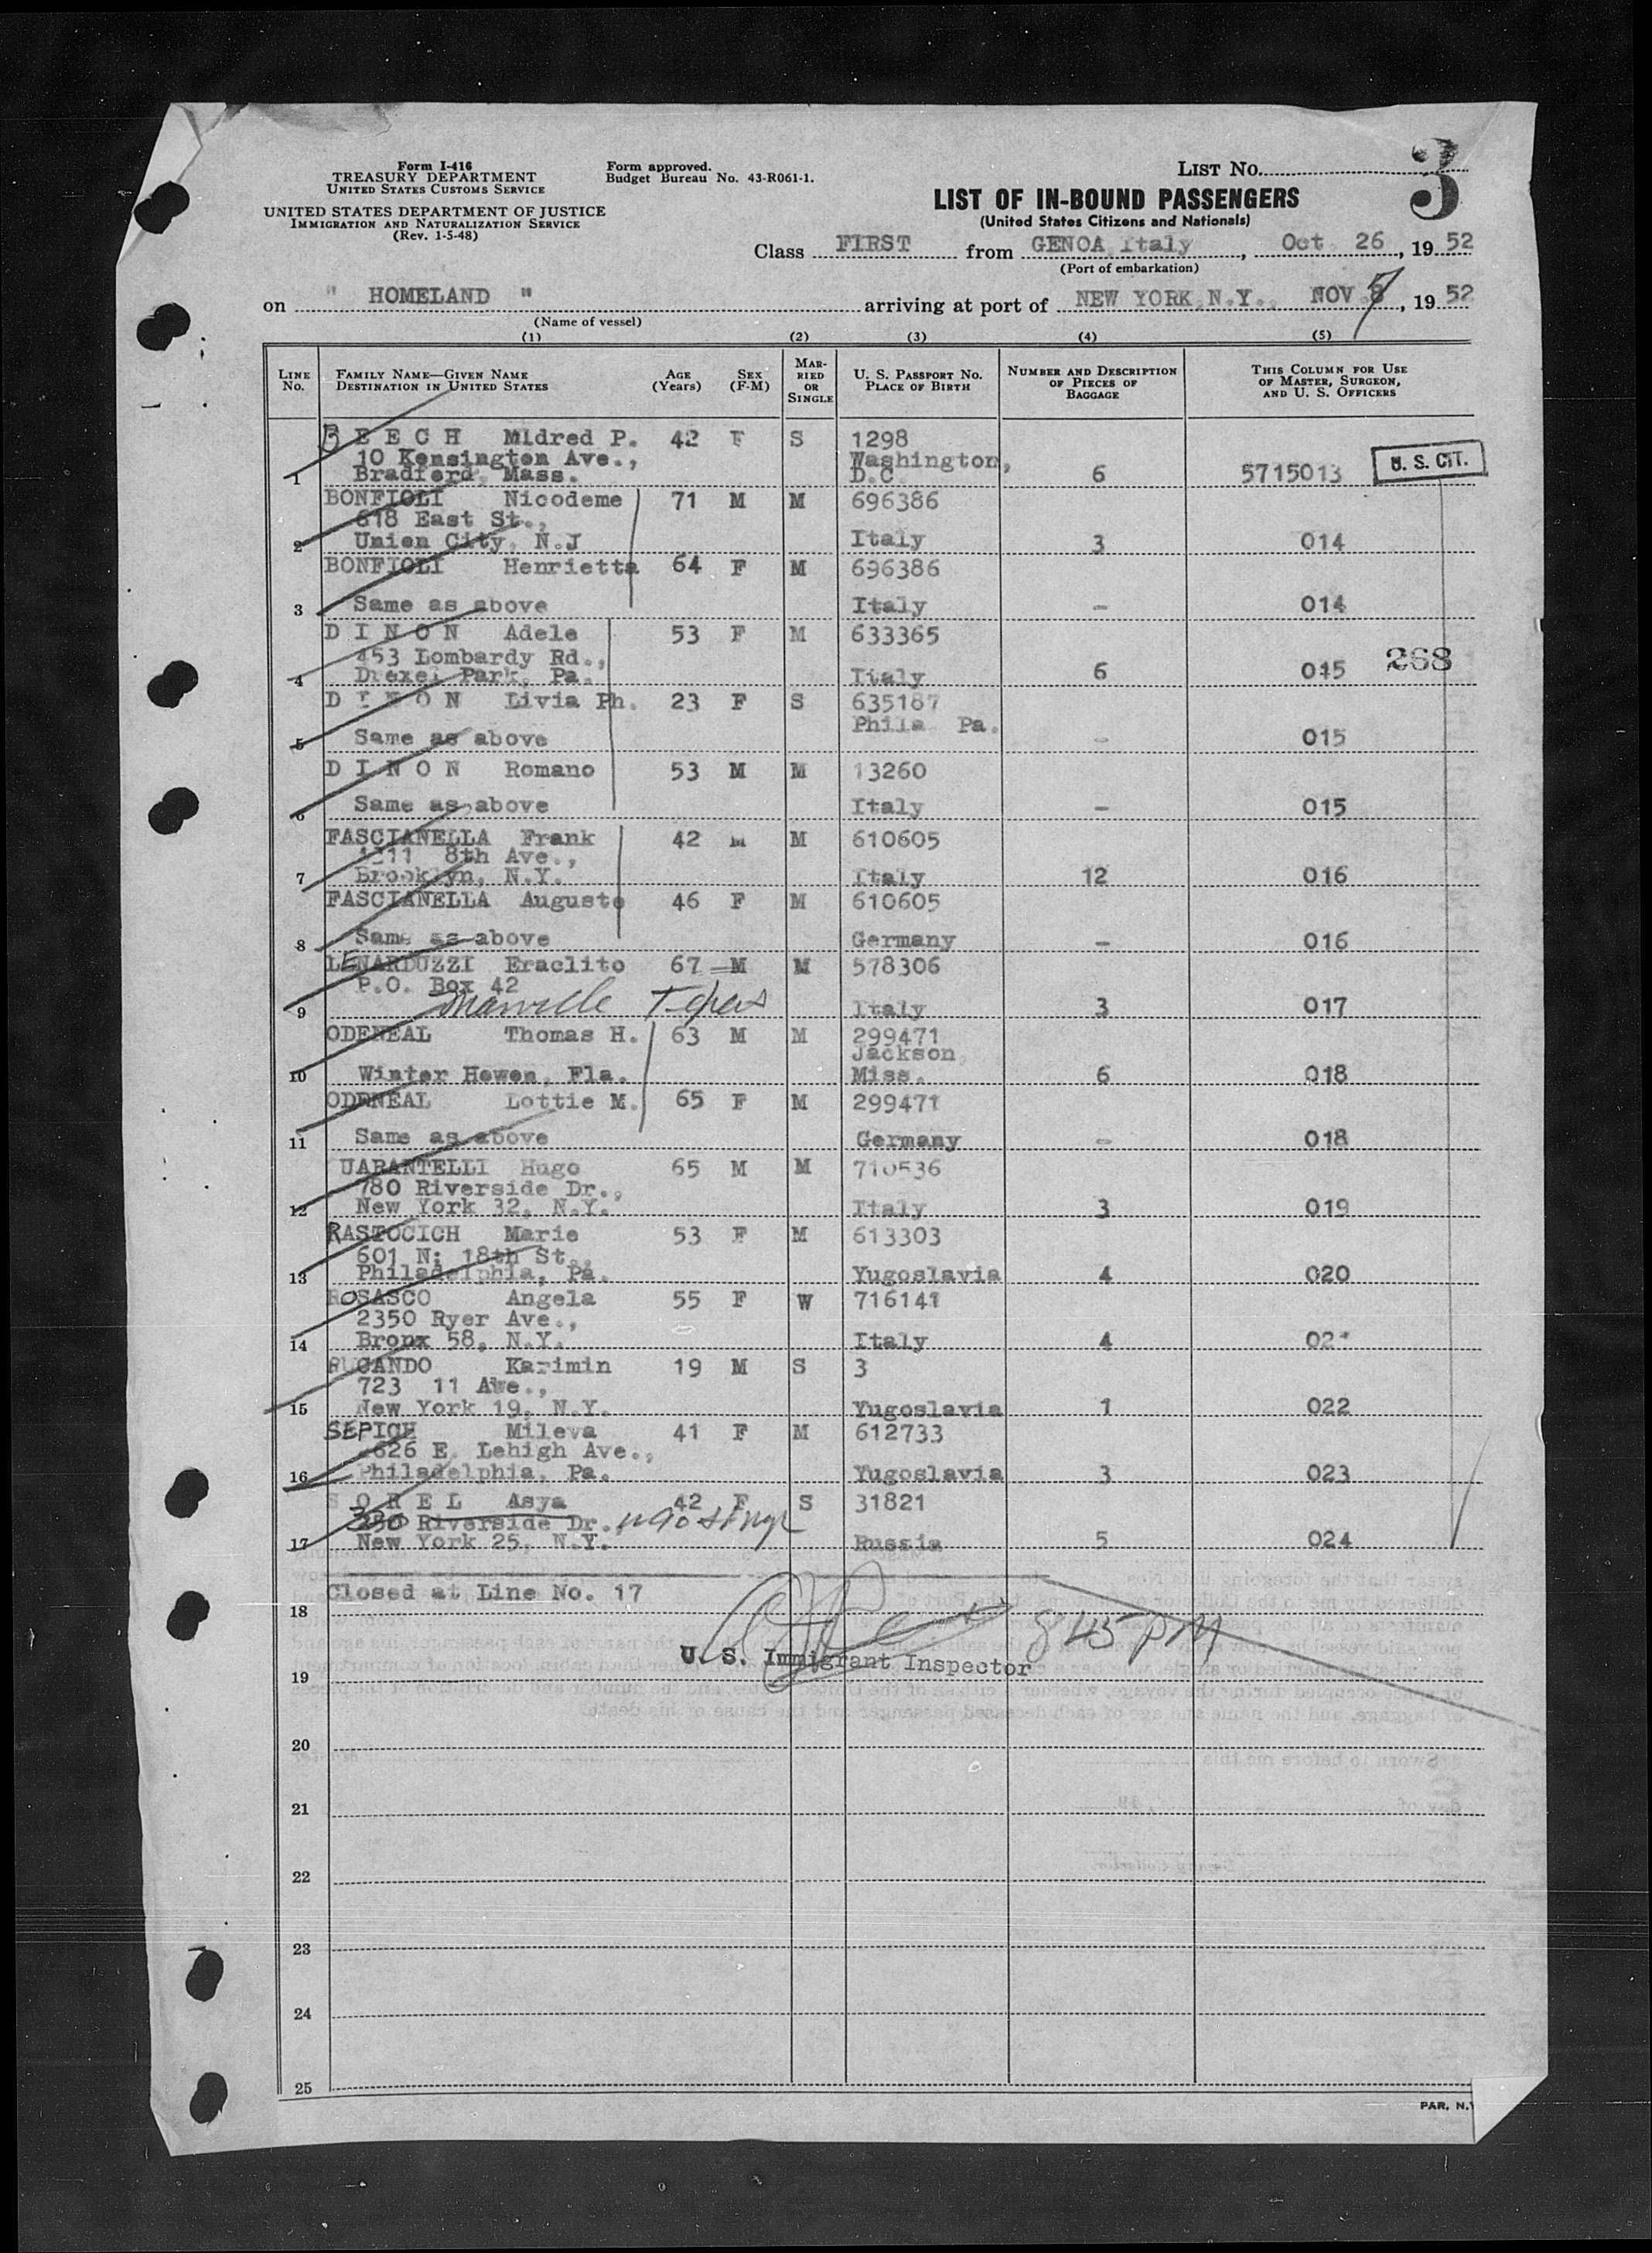 Form I-416
TREASURY DEPARTMENT
UNITED STATES CUSTOMS SERVICE
UNITED STATES DEPARTMENT OF JUSTICE
IMMIGRATION AND NATURALIZATION SERVICE
(Rev. 1-5-48)
Form approved.
Budget Bureau No. 43-R061-1.
LIST No. 3
LIST OF IN-BOUND PASSENGERS
(United States Citizens and Nationals)
Class FIRST from GENOA Italy, Oct 26, 1952
(Port of embarkation)
on " HOMELAND " arriving at port of NEW YORK N.Y., NOV 7, 1952
(Name of vessel)
(1) (2) (3) (4) (5)
LINE No. FAMILY NAME—GIVEN NAME DESTINATION IN UNITED STATES AGE (Years) SEX (F-M) MARRIED OR SINGLE U. S. PASSPORT NO. PLACE OF BIRTH NUMBER AND DESCRIPTION OF PIECES OF BAGGAGE THIS COLUMN FOR USE OF MASTER, SURGEON, AND U. S. OFFICERS
BEECH Mldred P. 42 F S 1298
10 Kensington Ave., Washington,
1 Bradford, Mass. D.C. 6 5715013 U. S. CIT.
BONFIOLI Nicodeme 71 M M 696386
618 East St.,
2 Union City, N.J Italy 3 014
BONFIOLI Henrietta 64 F M 696386
3 Same as above Italy - 014
DINON Adele 53 F M 633365
453 Lombardy Rd.,
4 Drexel Park, Pa. Italy 6 015 268
DINON Livia Ph. 23 F S 635187
Phila Pa.
5 Same as above - 015
DINON Romano 53 M M 13260
6 Same as above Italy - 015
FASCIANELLA Frank 42 M M 610605
8th Ave.,
7 Brooklyn, N.Y. Italy 12 016
FASCIANELLA Auguste 46 F M 610605
8 Same as above Germany - 016
LENARDUZZI Eraclito 67 M M 578306
P.O. Box 42
9 Manville Italy 3 017
ODENEAL Thomas H. 63 M M 299471
Jackson
10 Winter Hewen, Fla. Miss. 6 018
ODENEAL Lottie M. 65 F M 299471
11 Same as above Germany - 018
UARANTELLI Hugo 65 M M 710536
780 Riverside Dr.,
12 New York 32, N.Y. Italy 3 019
RASTOCICH Marie 53 F M 613303
601 N; 18th St.,
13 Philadelphia, Pa. Yugoslavia 4 020
ROSASCO Angela 55 F W 716141
2350 Ryer Ave.,
14 Bronx 58, N.Y. Italy 4 02
RUGANDO Karimin 19 M S 3
723 11 Ave.,
15 New York 19, N.Y. Yugoslavia 1 022
SEPICH Mileva 41 F M 612733
626 E. Lehigh Ave.,
16 Philadelphia, Pa. Yugoslavia 3 023
SOREL Asya 42 F S 31821
350 Riverside Dr.,
17 New York 25, N.Y. Russia 5 024
Closed at Line No. 17
18
8 45 PM
U. S. Immigrant Inspector
19
20
21
22
23
24
25
PAR. N.Y